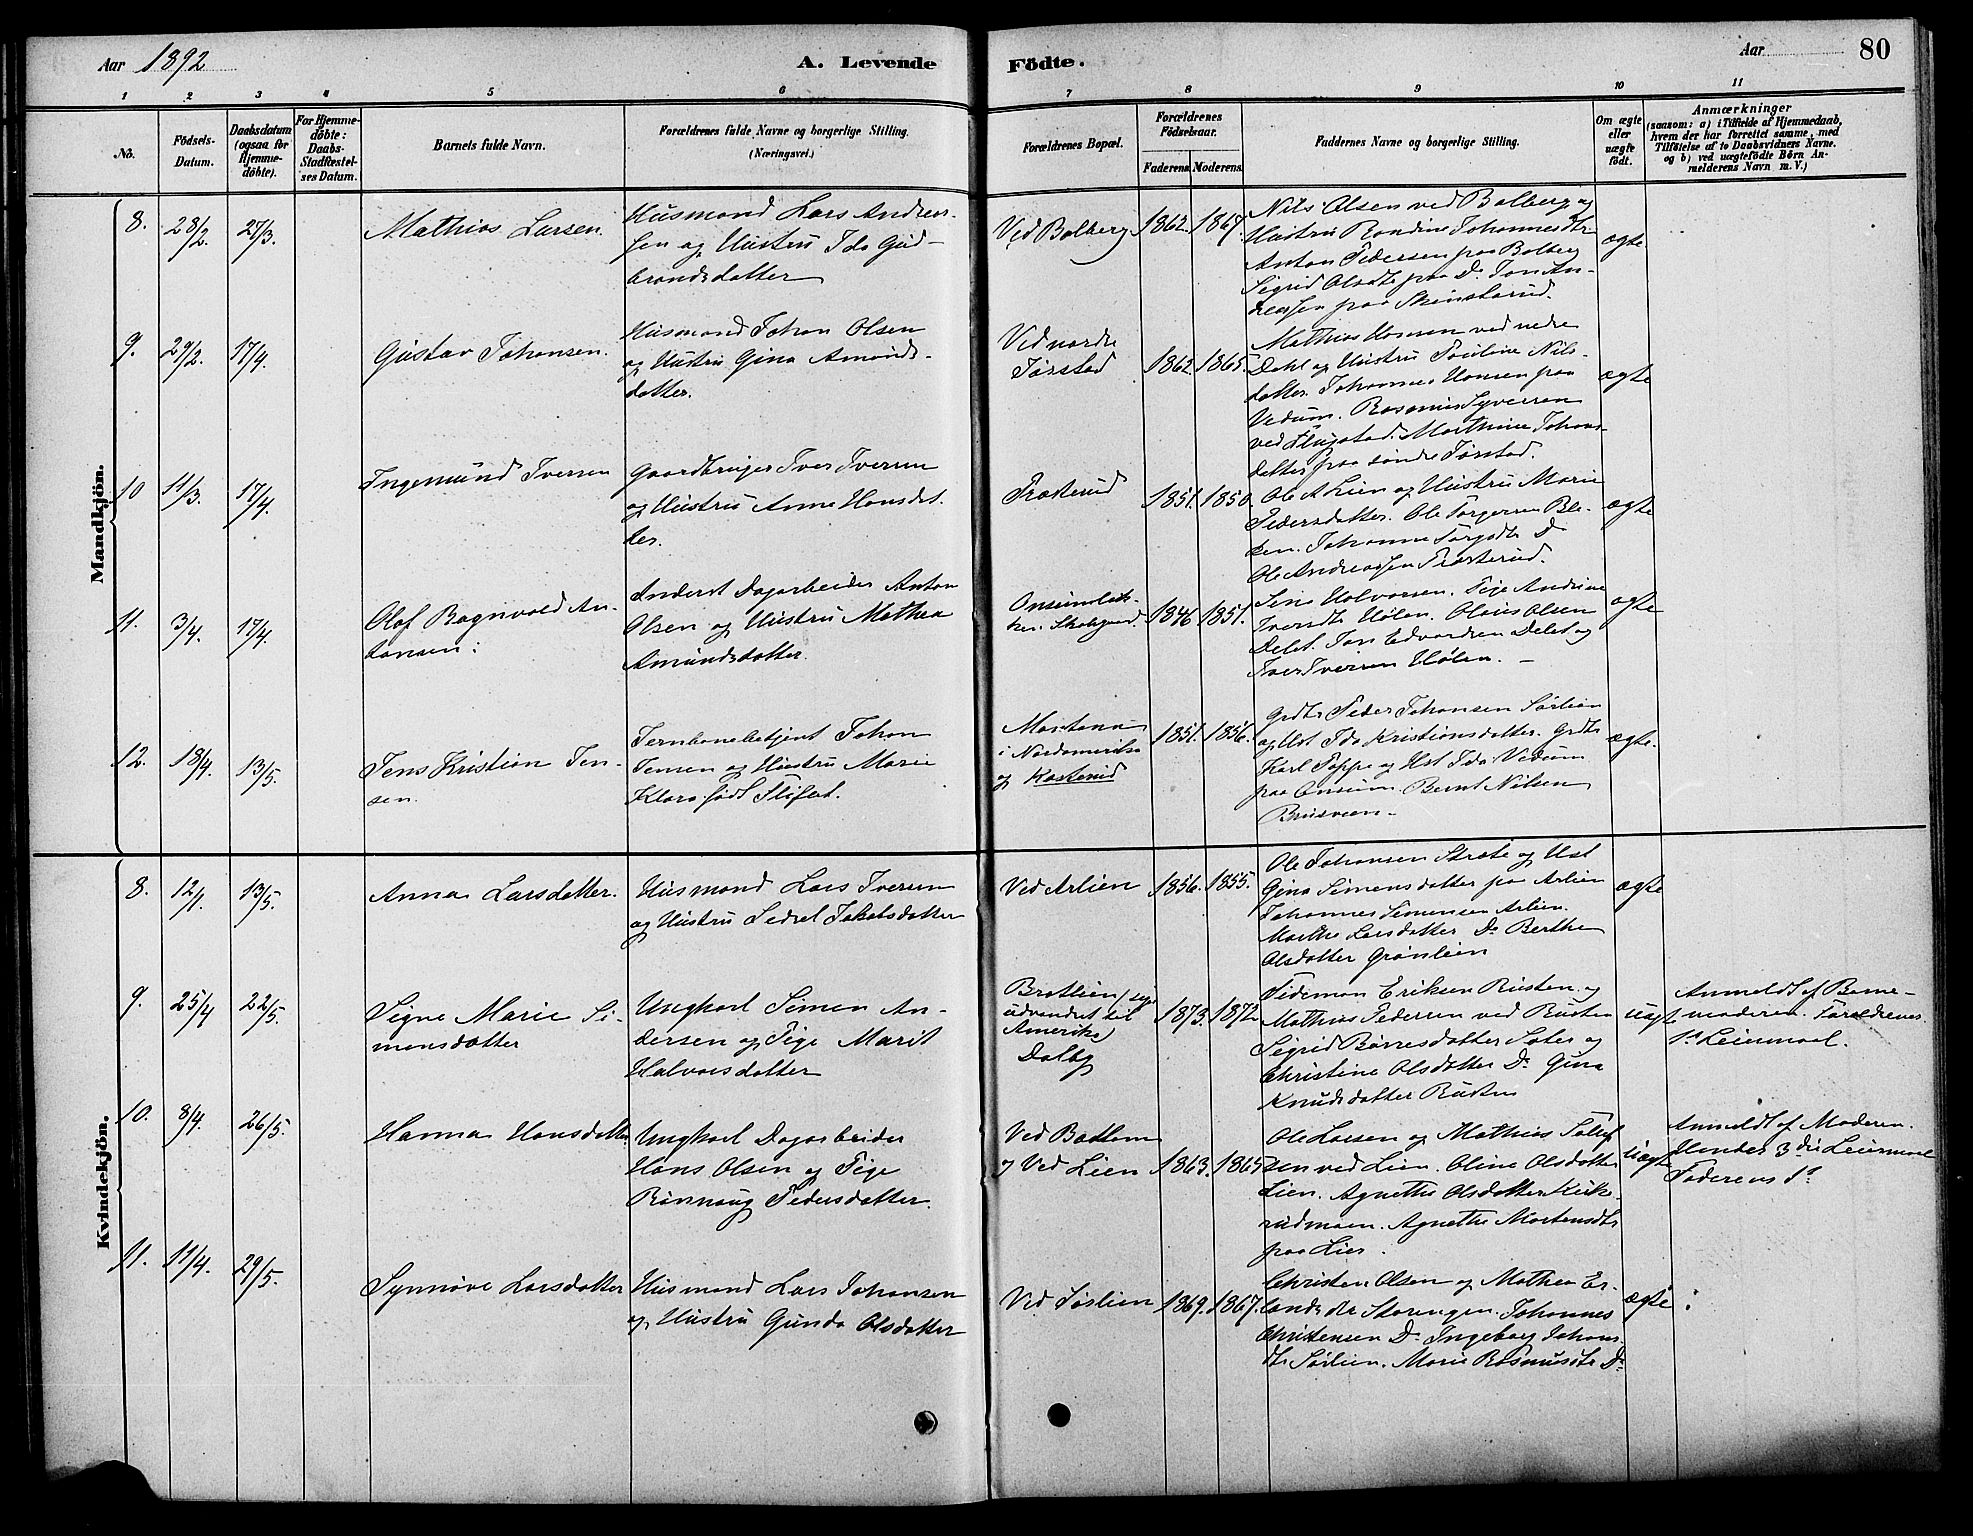 Aar 1892
A. Levende
Födte.
Aar
80
1 2 3 4 5 6 7 8 9 10 11
No.
Födsels-
Datum.
Daabsdatum
(ogsaa for
Hjemme-
døbte).
For Hjemme-
døbte:
Daabs-
Stadfæstel-
ses Datum.
Barnets fulde Navn.
Forældrenes fulde Navne og borgerlige Stilling.
(Næringsvei.)
Forældrenes Bopæl.
Forældrenes
Födselsaar.
Faderens Moderens
Faddernes Navne og borgerlige Stilling.
Om ægte
eller
uægte
født.
Anmærkninger
(saasom: a) i Tilfælde af Hjemmedaab,
hvem der har forrettet samme, med
Tilføielse af to Daabsvidners Navne.
og b) ved uægtefødte Børn An-
melderens Navn m. V.)
Mandkjön.
8. 28/2. 27/3. Mathias Larsen.
Husmand Lars Andrea-
sen og Hustru Ida Gud-
brandsdatter
Ved Bolberg 1862. 1867.
Nils Olsen ved Bolberg og
Hustru Randine Johannesdtr
Anton Pedersen paa Bolberg
Sigrid Olsdtr paa Do. Jon An-
dreasen paa
ægte
9. 29/2. 17/4. Gustav Johansen.
Husmand Johan Olsen
og Hustru Gina Amunds-
datter.
Ved nordre
Tørstad
1862. 1865.
Mathias Hansen ved nedre
Dahl og Hustru Pauline Nils-
datter. Johannes Hansen paa
Vedum. Rasmus Syversen
ved Flugstad. Marthine Johans-
datter paa søndre Tørstad.
ægte
10 11/3. 17/4. Ingemund Iversen
Gaardbruger Iver Iversen
og Hustru Anne Hansdat-
ter.
Prosterud
1851. 1850.
Ole A Lien og Hustru Marie
Pedersdatter. Ole Torgersen Ble-
ken. Johanne Torgsdtr Do
Ole Andreassen Prosterud.
ægte
11. 3/4. 17/4. Olaf Ragnvald An-
tonsen.
Inderst Dagarbeider Anton
Olsen og Hustru Mathea
Amundsdatter.
1846 1851.
Halvorsen. Pige Andrine
Iversdtr Hølen. Olaus Olsen
Delet. Jon Edvardsen Delet og
Iver Iversen Hølen.
ægte
12. 18/4. 13/5. Jens Kristian Jen-
sen.
Jernbanebetjent Johan
Jensen og Hustru Marie
Klara født
Montana
i Nordamerika
og Kasterud
1851. 1856.
Grdbr Peder Johansen Sørlien
og Hst Ida Kristiansdatter. Grdbr
Karl Poppe og Hst Ida Vedum
paa Onsum. Bernt Nilsen
Brusveen.
ægte.
Kvindekjön.
8. 12/1. 13/5. Anna Larsdatter.
Husmand Lars Iversen
og Hustru Sidsel Jakobsdatter
Ved Arlien 1856. 1855.
Ole Johansen Stræte og Hst
Gina Simensdatter paa Arlien
Johannes Simensen Arlien.
Marthe Larsdatter Do Berthe
Olsdatter Grønlien
ægte
9. 25/4 22/5. Signe Marie Si-
mensdatter
Ungkarl Simen An-
dersen og Pige Marit
Halvorsdatter
Bratlien
udvandret til
Amerika)
Dalby
1873. 1872
Tideman Eriksen Rusten og
Mathias Pedersen ved Rusten
Sigrid Børresdatter Sater og
Christine Olsdatter Do Gina
Knudsdatter Rusten
uægte
Anmeldt af Barne-
moderen. Forældrenes
1ste Leiermaal.
10. 8/4. 26/5. Hanna Hansdatter
Ungkarl Dagarbeider
Hans Olsen og Pige
Rønnaug Pedersdatter.
Ved
og Ved Lien
1863. 1865
Ole Larsen og Mathias Tollef
sen ved Lien. Oline Olsdatter
Lien. Agnethe Olsdatter Kirke-
rudmoen. Agnethe Mortensdtr
paa Lier.
uægte
Anmeldt af Moderen.
Hendes 3die Leiermaal
Faderens 1ste
11. 11/4. 29/5. Synnøve Larsdatter
Husmand Lars Johansen
og Hustru Gunda Olsdatter
Ved Sørlien 1869. 1867.
Christen Olsen og Mathea Er-
landsdtr Storengen. Johannes
Christensen Do. Ingeborg Johans-
dtr Sørlien. Marie Rasmusdtr Do
ægte